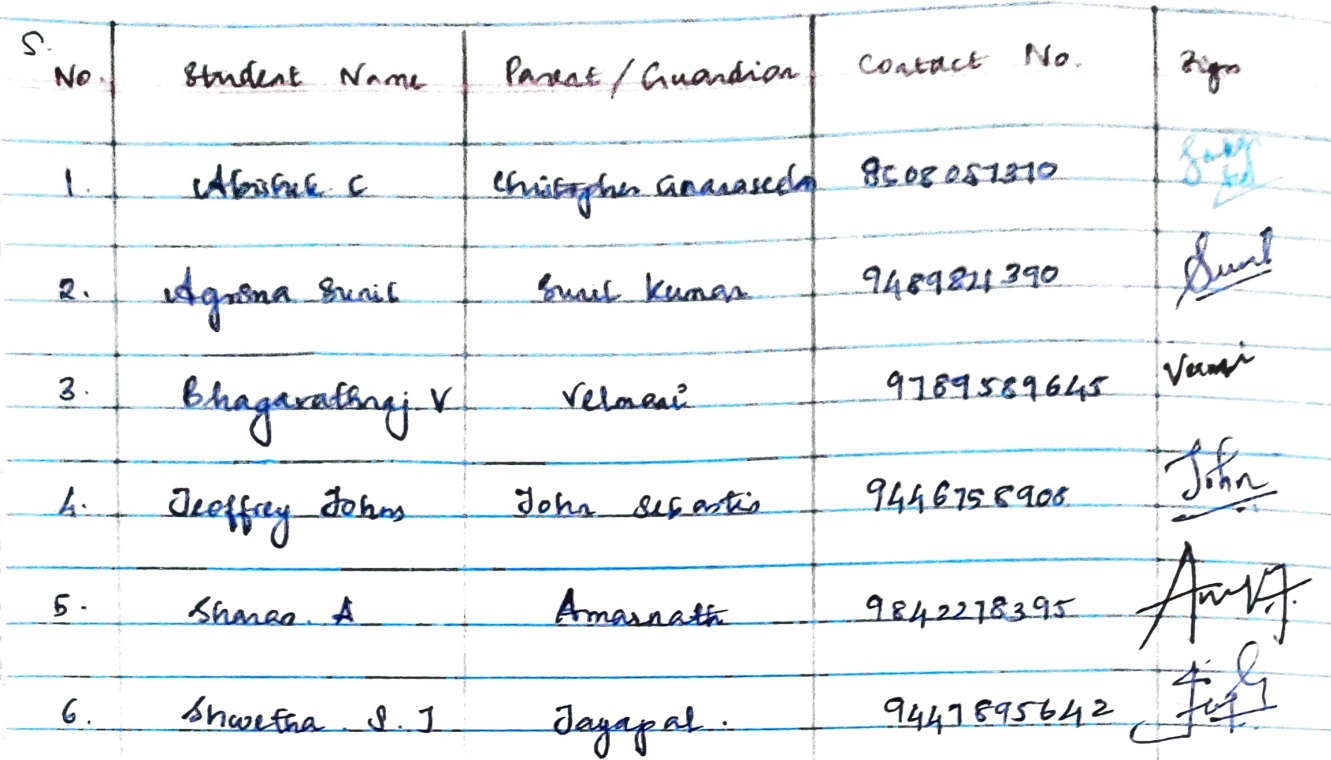 S.
No. Student Name Parent / Guardian Contact No. Sign
1. Abishek C Christopher 8608051310
2. Sunil Sunil Kumar 9489821390 Sunil
3. Bhagavathraj V Velmani 9789589645
4. Jeoffrey Johns John 9446758908 John
5. A Amarnath 9842278395
6. Shwetha S.J Jayapal. 9447895642